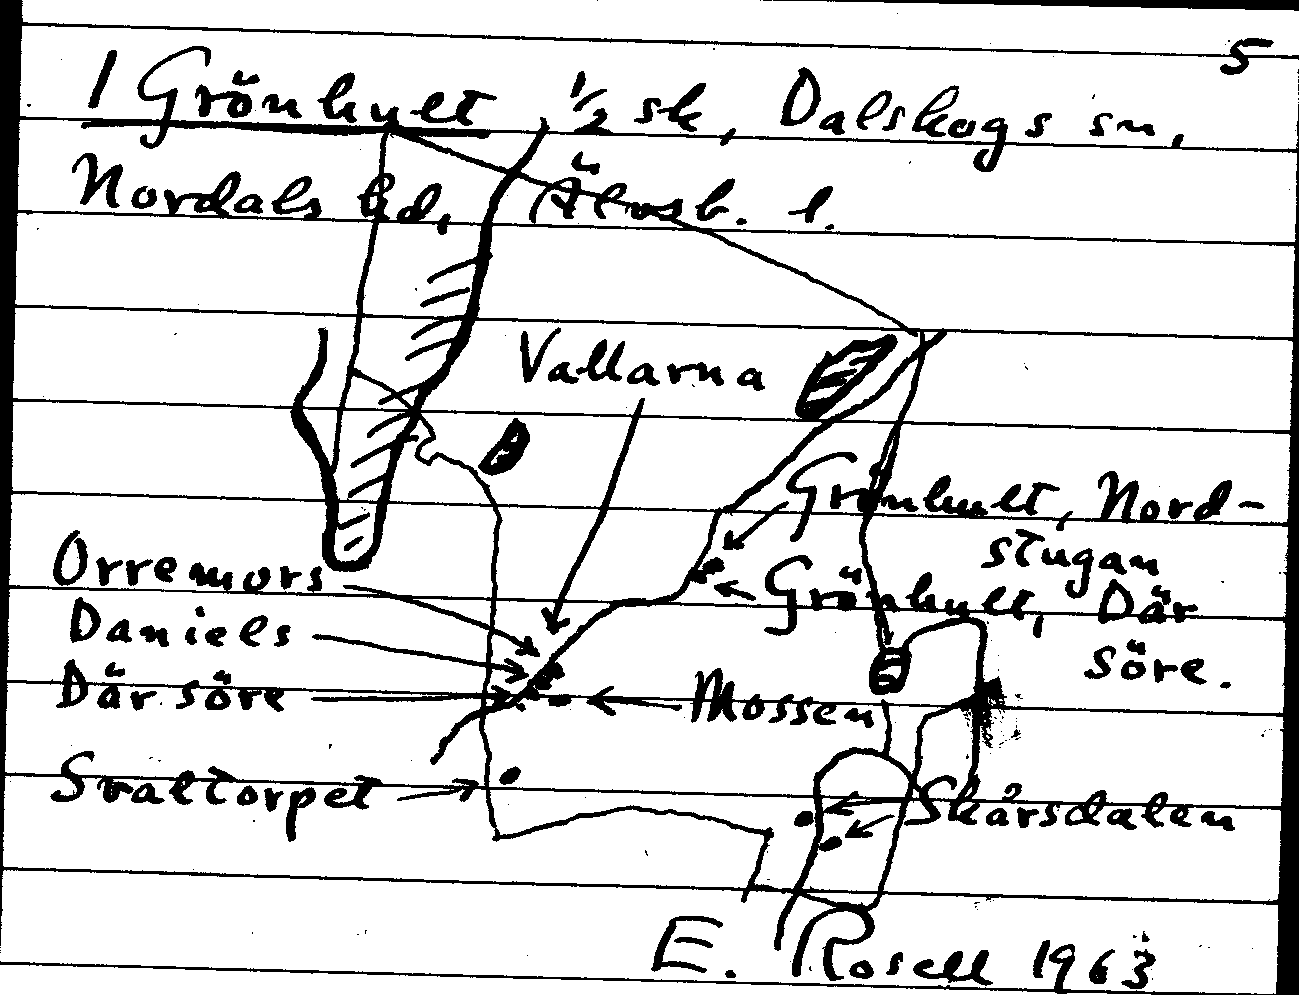 5
1 Grönhult, 1/2 sk, Dalskogs sn,
Nordals hd, Älvsb. l.
Vallarna
Grönhult, Nord-
stugan
Orremors
Grönhult, Där
söre.
Daniels
Där söre
Mossen
Svaltorpet
Skårsdalen
E. Rosell 1963